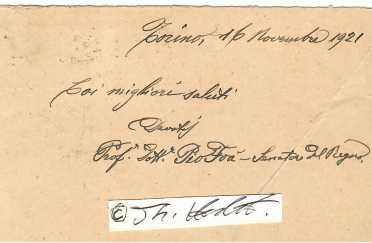 Torino, 16 Novembre 1921
Coi migliori saluti
Devot.
Prof. Dott. Pio Foà - Senatore del Regno.
© Th.